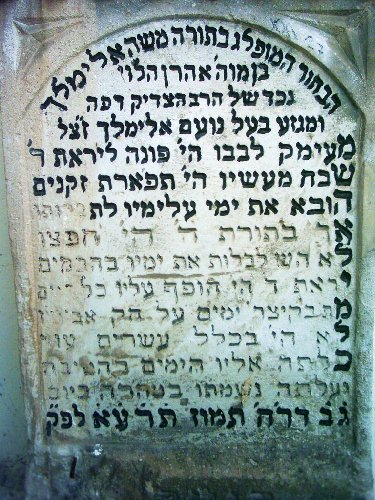 הבחור המופלג בתורה משה אלימלך
בן מוה' אהרן הלוי
נכד של הרב הצדיק דפה
ומגזע בעל נועם אלימלך זצל
מעימק לבבו הי' פונה ליראת ד'
שבח מעשיו הי' תפארת זקנים
הובא את ימי עלימיו
בתורת ה' הי' חפצו
לבלות את ימיו
יראת ד' הי' חופף עליו כל
ימים על
הי' בכלל עשרים
אליו הימים
נשמתו בטהרה ביום
ג' ב דר"ח תמוז תר עא לפק
משהאלימלך